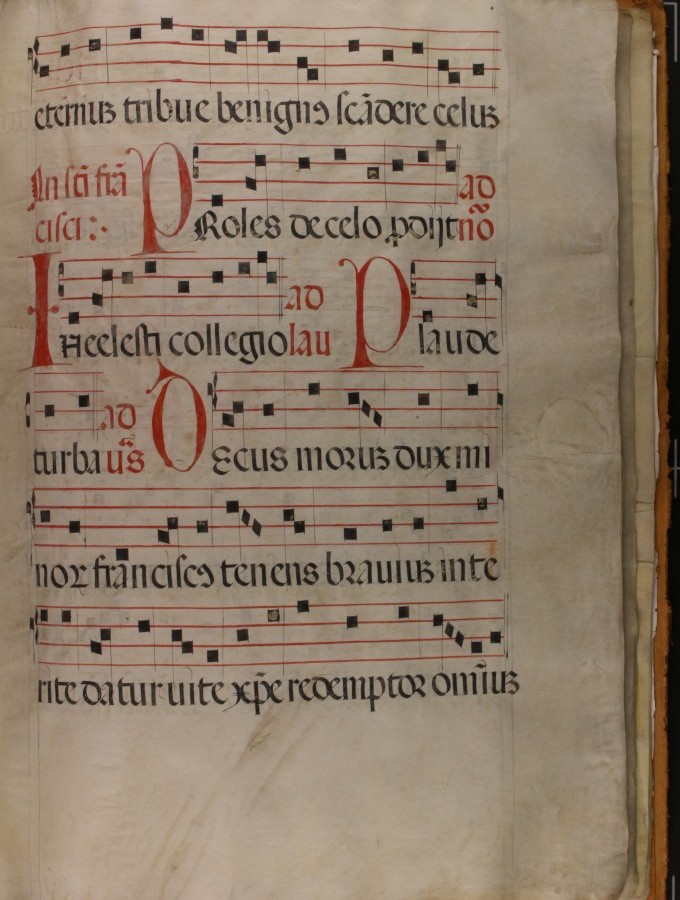 eternus tribue benignꝯ scādere celus
In sc̄i frā
cisci : PRoles de celo ꝓdijt ad nō
In celesti collegio ad lau Plaude
turba ad ūs Decus morus dux mi
nor franciscꝯ tenens brauius in te
rite datur uite xp̄e redemptor om̄ius